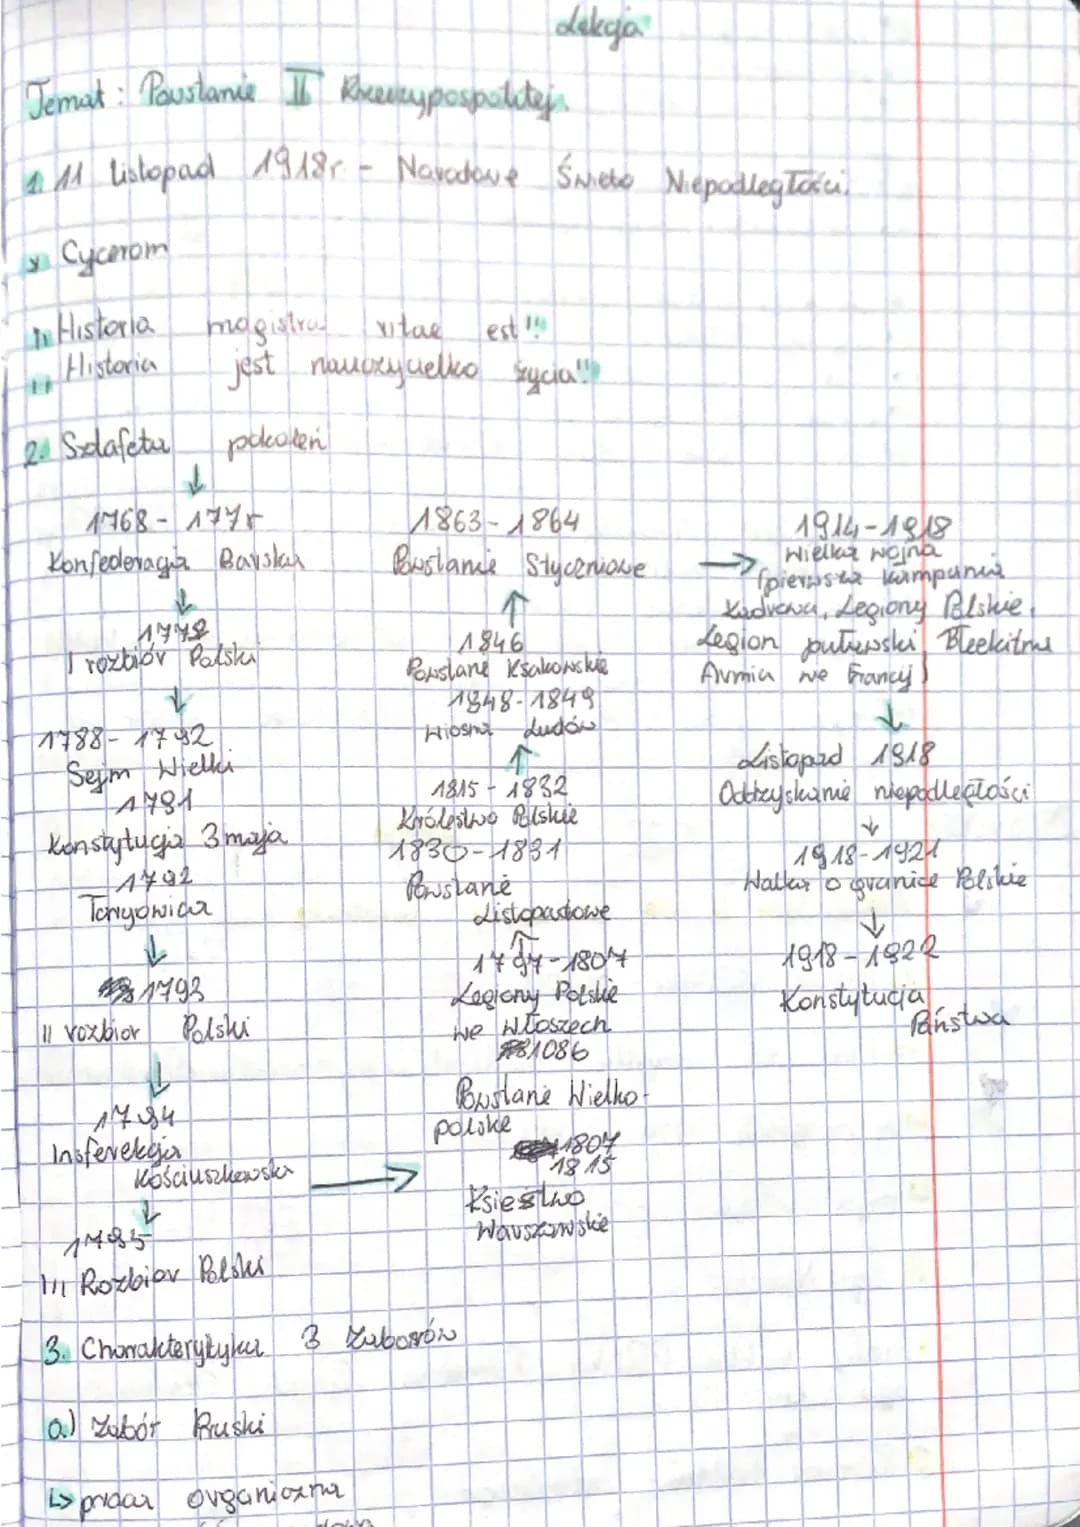 Lekcja
Temat: Powstanie II Rzeczypospolitej.
1. 11 listopad 1918r. - Narodowe Święto Niepodległości.
Cycerom
"Historia magistra vitae est"
"Historia jest nauczycielko życia"
2. Sztafeta pokoleń
1768 - 177
Konfederacja Barska
1772
I rozbiór Polski
1788 - 1792
Sejm Wielki
1791
Konstytucja 3 maja
1792
Targowica
1793
II rozbior Polski
1794
Insferekcja
Kościuszkowska
1795
III Rozbior Polski
1863 - 1864
Powstanie Styczniowe
1846
Powstane Krakowskie
1848 - 1849
Wiosna Ludów
1815 - 1832
Królestwo Polskie
1830 - 1831
Powstane
Listopadowe
1797 - 1807
Legiony Polskie
we Włoszech
1086
Powstane Wielko-
polske
1807
1815
Księstwo
Warszawskie
1914 - 1918
Wielka wojna
(pierwsza kampania
Kadrowa, Legiony Polskie,
Legion puławski, Błekitna
Armia we Francj)
Listopad 1918
Odzyskanie niepodległości
1918 - 1921
Walka o granice Polskie
1918 - 1922
Konstytucja
Państwa
3. Charakterytyka 3 Zaborów
a.) Zabór Pruski
↳ praca organiczna